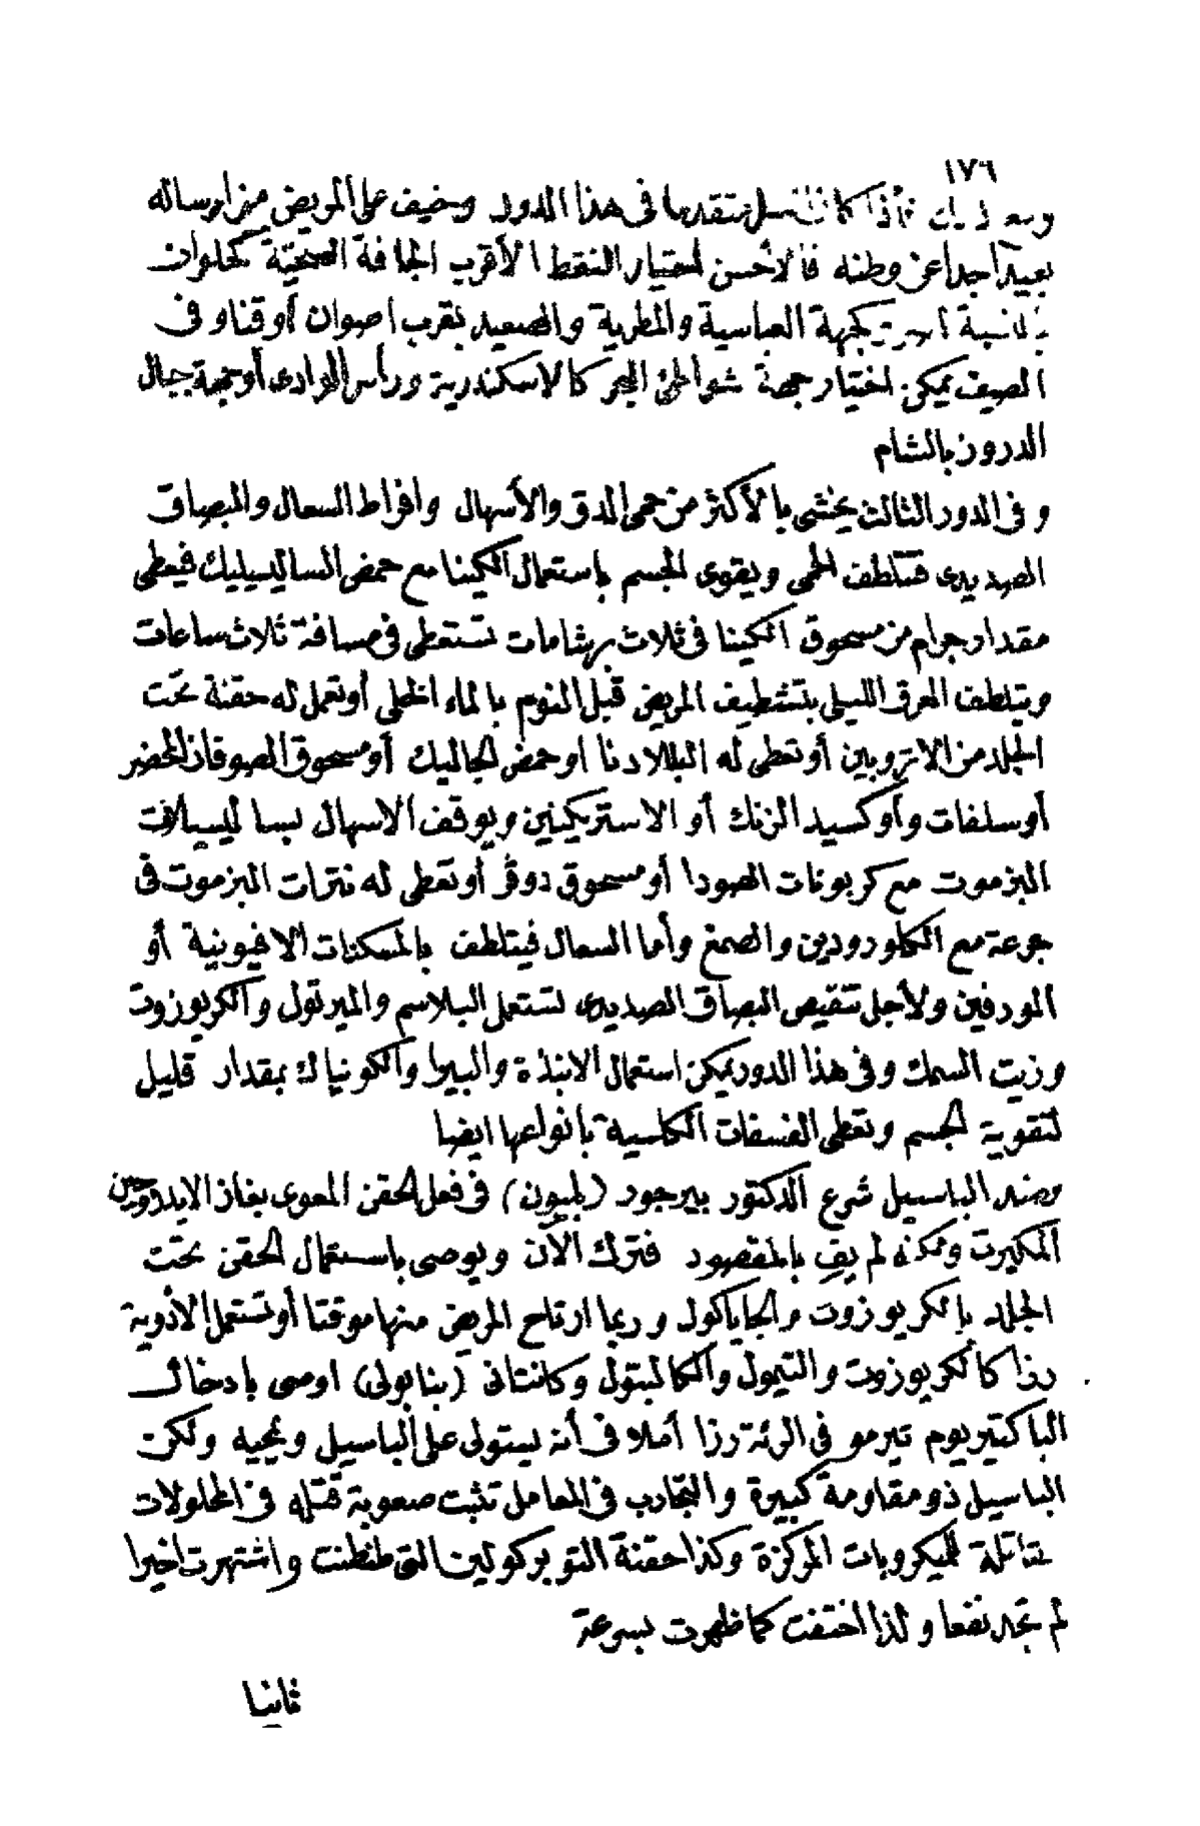 ١٧٦
فاذا كان السل متقدما فى هذا الدور وخيف على المريض من ارساله
بعيدا جدا عن وطنه فالأحسن اختيار النقط الأقرب الجافة الصحية كحلوان
كجهة العباسية والمطرية والصعيد بقرب اصوان أو قنا وفى
الصيف يمكن اختيار جهة شواطئ البحر كالاسكندرية ورأس الوادى أو جهة جبال
الدروز بالشام
وفى الدور الثالث يخشى بالأكثر من حمى الدق والأسهال وافراط السعال والبصاق
الصديدى فتتلطف الحمى ويقوى الجسم باستعمال الكينا مع حمض الساليسيليك فيعطى
مقدار جرام من مسحوق الكينا فى ثلاث برشامات تستعطى فى مسافة ثلاث ساعات
ويتلطف العرق الليلى بتشطيف المريض قبل النوم بالماء الخلى أو تعمل له حقنة تحت
الجلد من الاتروبين أو تعطى له البلادنا او حمض الجاليك أو مسحوق الصوفان المحضر
أو سلفات وأوكسيد الزنك أو الاستريكنين ويوقف الاسهال بساليسيلات
البزموت مع كربونات الصودا أو مسحوق دوفر أو تعطى له نترات البزموت فى
جوعة مع الكلورودين والصمغ وأما السعال فيتلطف بالمسكنات الافيونية أو
المورفين ولأجل تنقيص البصاق الصديدى تستعمل البلاسم والميرتول والكريوزوت
وزيت السمك وفى هذا الدور يمكن استعمال الانبذة والبيرا والكونياك بمقدار قليل
لتقوية الجسم وتعطى الفسفات الكلسية بانواعها ايضا
وضد الباسيل شرع الدكتور بيرجود (بليون) فى فعل الحقن المعوى بغاز الايدروجين
المكبرت ولكنه لم يف بالمقصود فترك الآن ويوصى باستعمال الحقن تحت
الجلد بالكريوزوت والجاياكول وربما ارتاح المريض منها موقتا أو تستعمل الأدوية
رذا كالكريوزوت والتيمول والكالبتول وكانتانى (بنابولى) اوصى بادخال
الباكتيريوم تيرمو فى الرئة رذا أملا فى أنه يستولى على الباسيل ويمحيه ولكن
الباسيل ذو مقاومة كبيرة والتجارب فى المعامل تثبت صعوبة قتله فى المحلولات
قاتلة للميكروبات المركزة وكذا حقنة التوبركولين التى طنطنت واشتهرت اخيرا
لم تجد نفعا ولذا اختفت كما ظهرت بسرعة
ثانيا